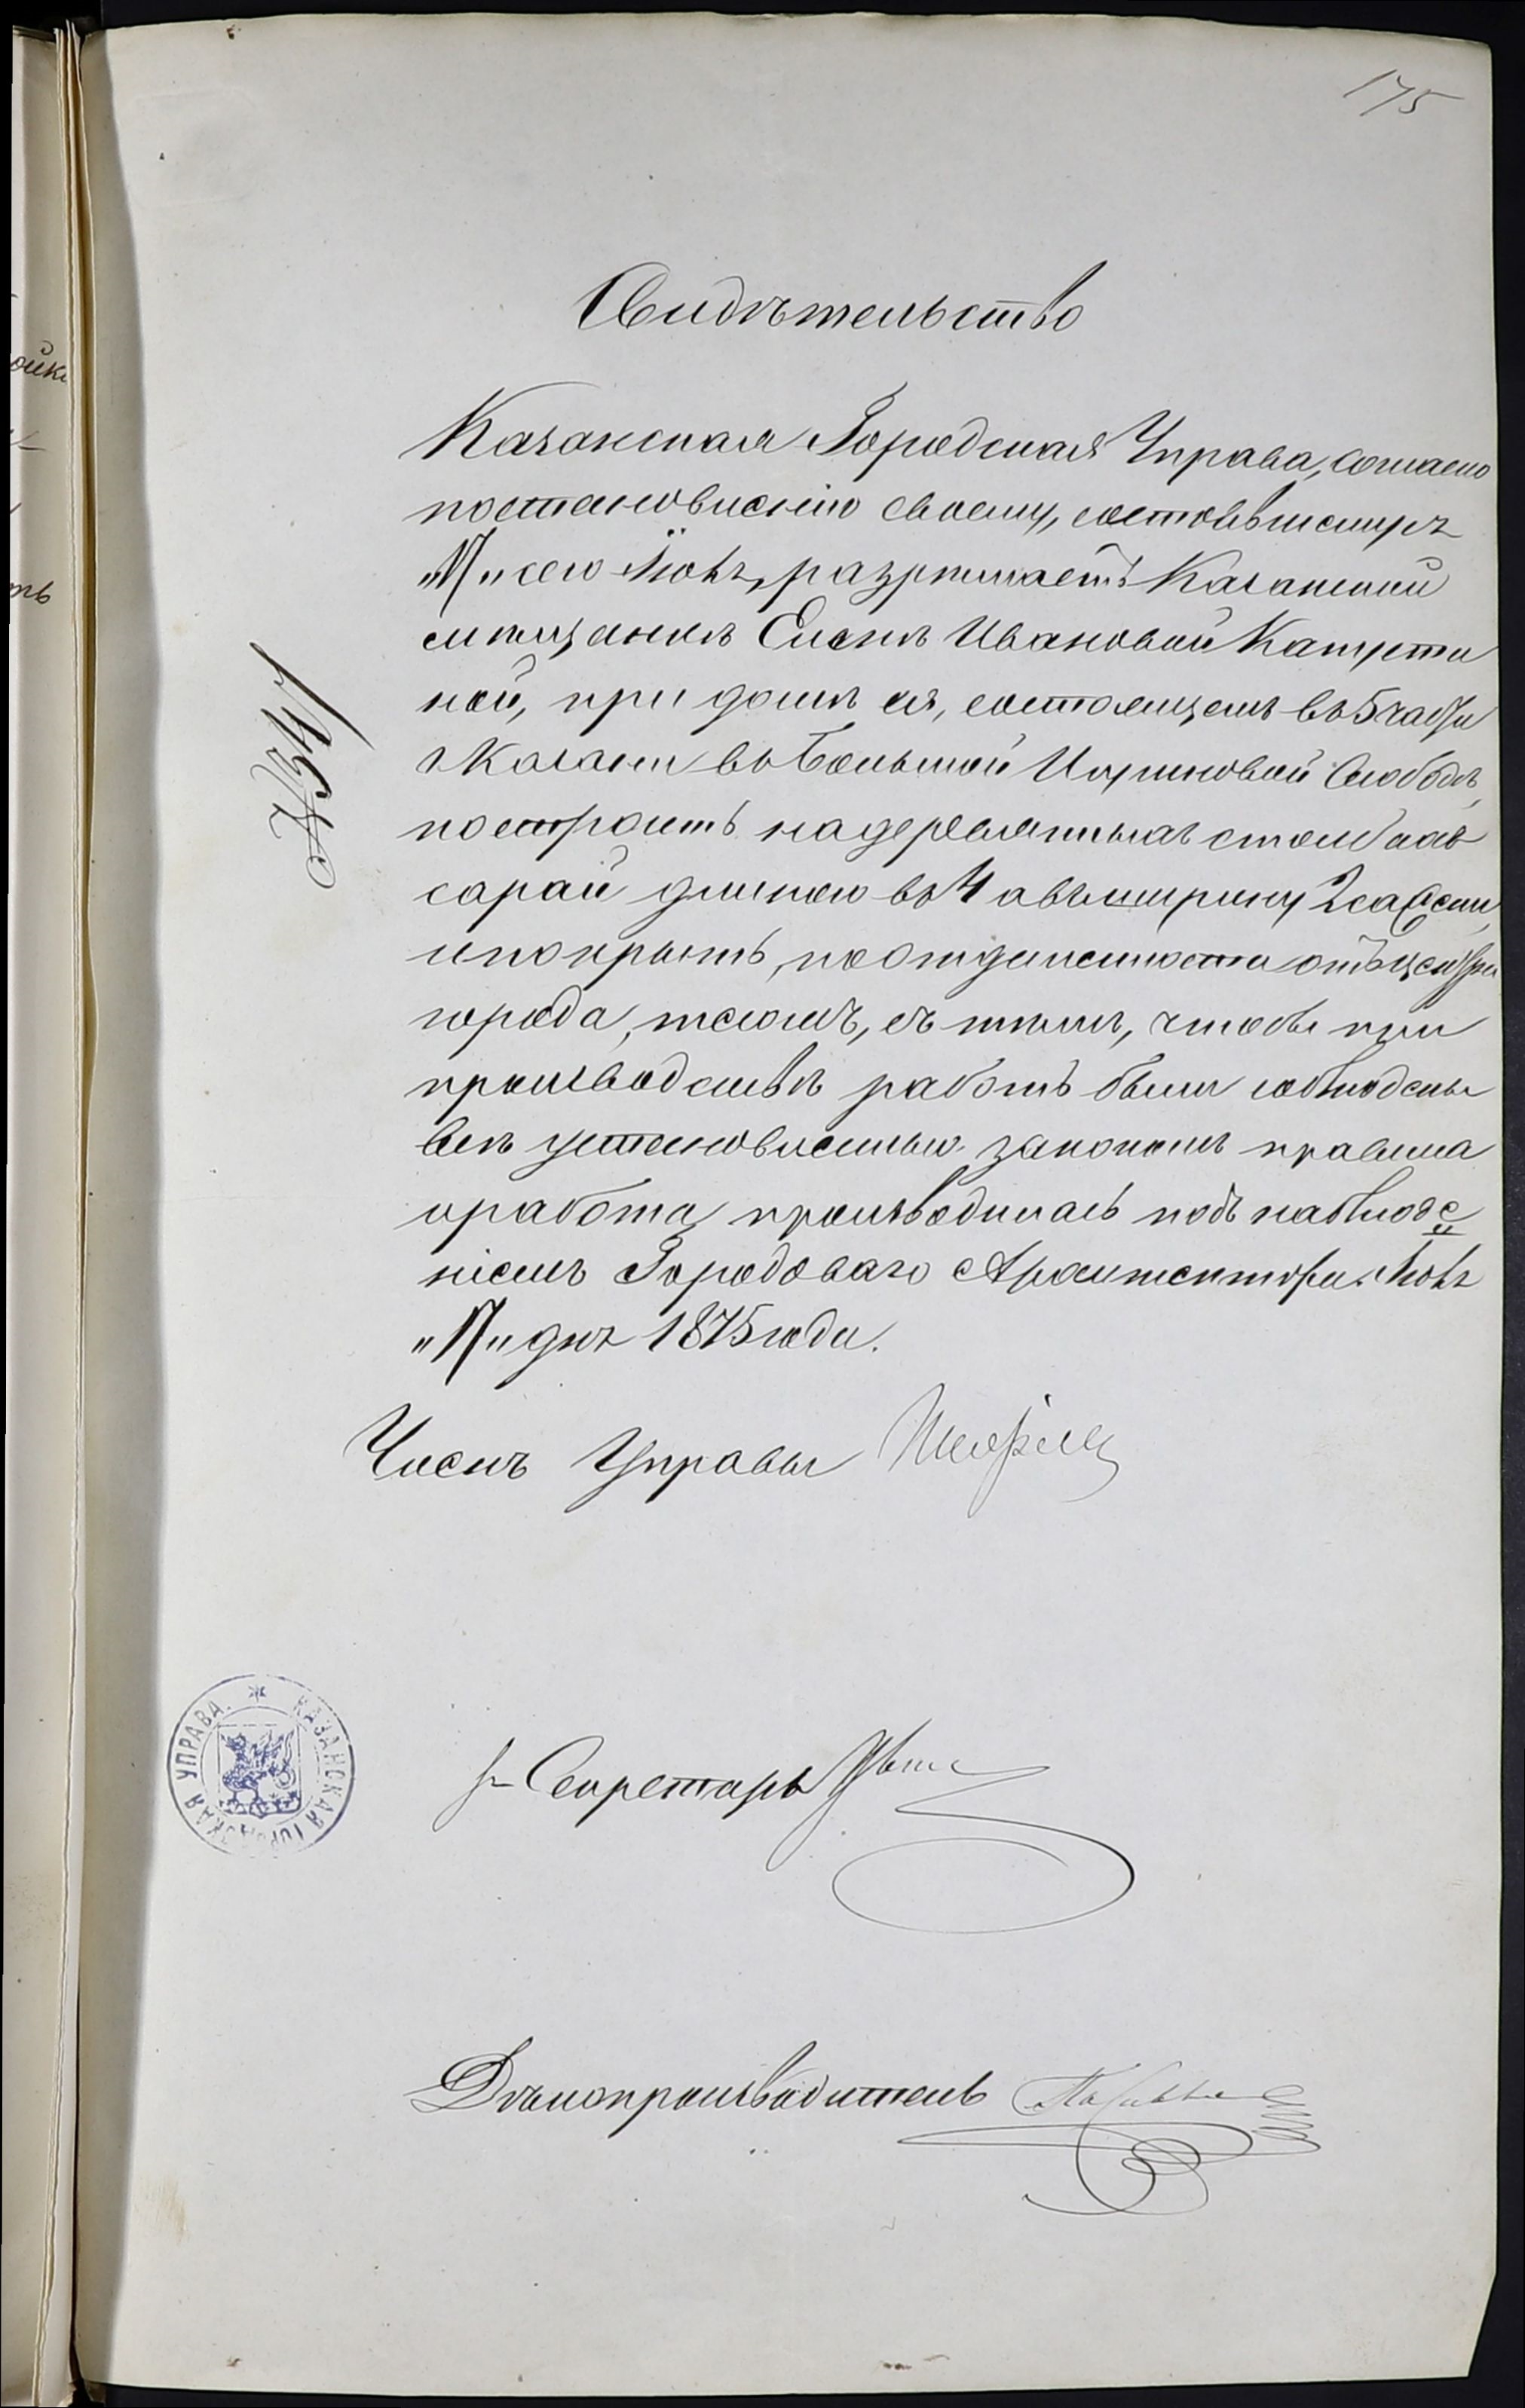 175
Свидѣтельство
Казанская Городская Управа, согласно
постановленію своему, состоявшемуся
"17" сего Іюня, разрѣшаетъ Казанской
мѣщанкѣ Еленѣ Ивановой
ной, при домѣ ея, состоящемъ въ 5 части
г Казани въ Большой Игумновой Слободѣ,
построить на деревянныхъ столбахъ
сарай длиною въ 4 а въ ширину 2 сажени,
и покрыть, по отдаленности отъ центра
города, тесомъ, съ тѣмъ, чтобы при
производствѣ работъ были соблюдены
всѣ установленныя закономъ правила
и работа производилась подъ наблюде
ніемъ Городоваго Архитектора. Іюня
"17" дня 1875 года.
Членъ Управы
Секретарь
Дѣлопроизводитель
КАЗАНСКАЯ ГОРОДСКАЯ УПРАВА.